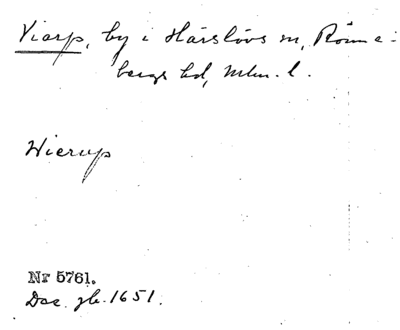 Viarp, by i Härslövs sn, Rönne-
bergs hd, Mlm. l.
Wierup
Nr 5761.
Doc. gb. 1651.